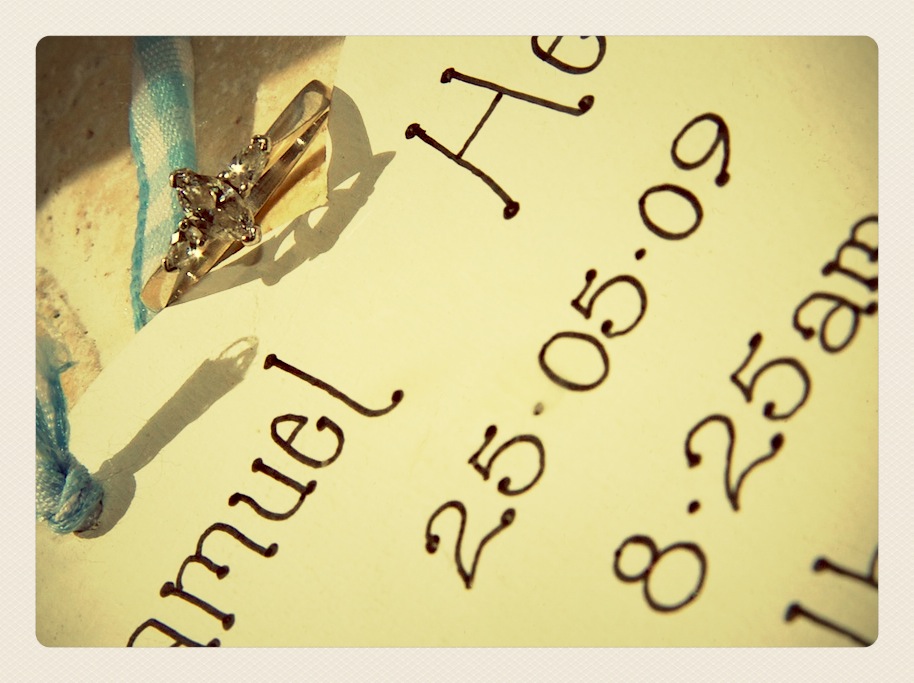 amuel He
25·05·09
8·25am